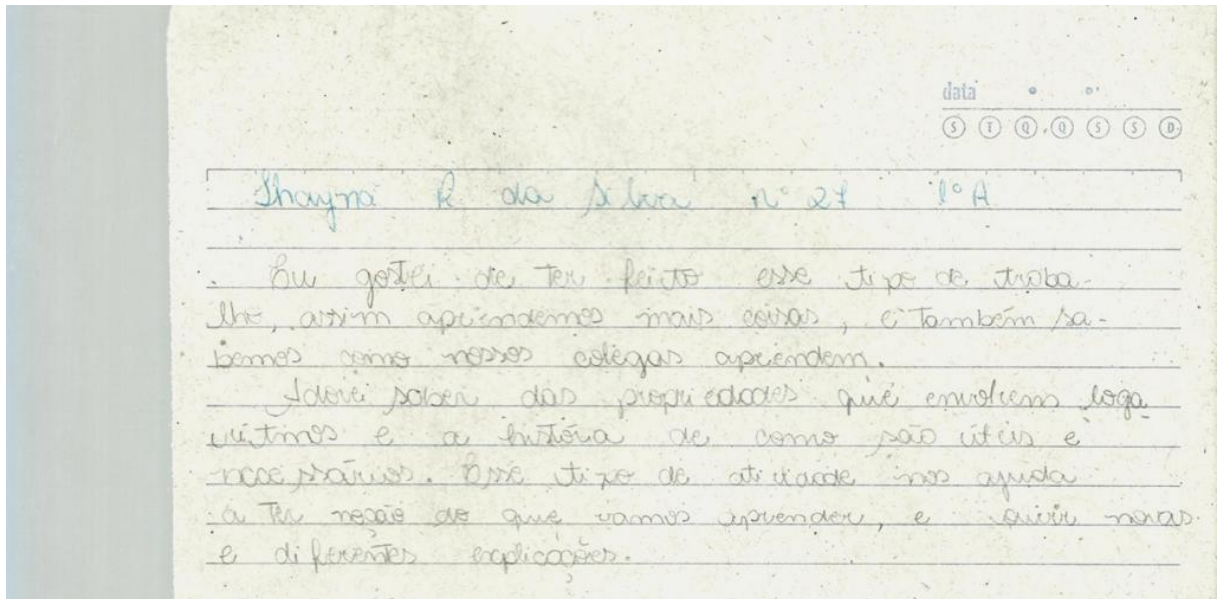 data
S T Q Q S S D
Thayná R da Silva nº 27 1º A
Eu gostei de ter feito esse tipo de traba-
lho, assim aprendemos mais coisas, e também sa-
bemos como nossos colegas aprendem.
Adorei saber das propriedades que envolvem loga
rítmos e a história de como são úteis e
necessários. Esse tipo de atividade nos ajuda
a ter noção do que vamos aprender, e ouvir novas
e diferentes explicações.